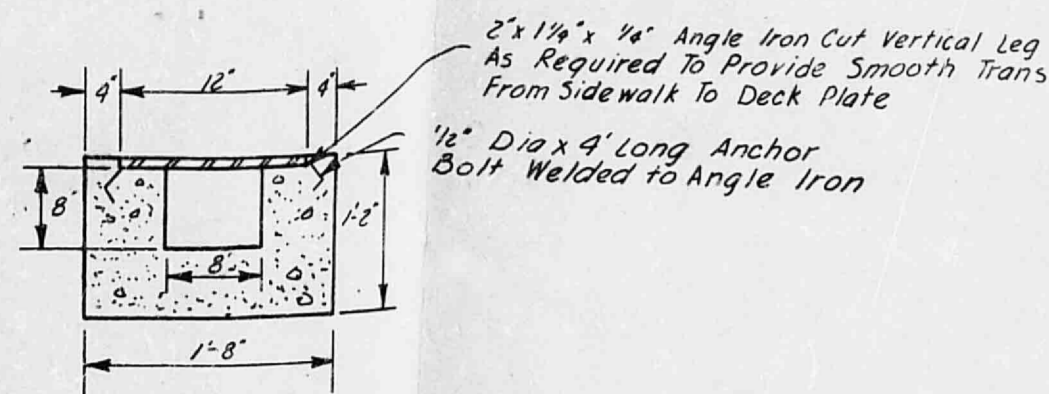 2" x 1 1/4" x 1/4" Angle Iron Cut Vertical Leg
As Required To Provide Smooth Trans
From Sidewalk To Deck Plate
4" 12" 4"
1/2" Dia x 4' Long Anchor
Bolt Welded to Angle Iron
8" 1'-2"
8"
1'-8"